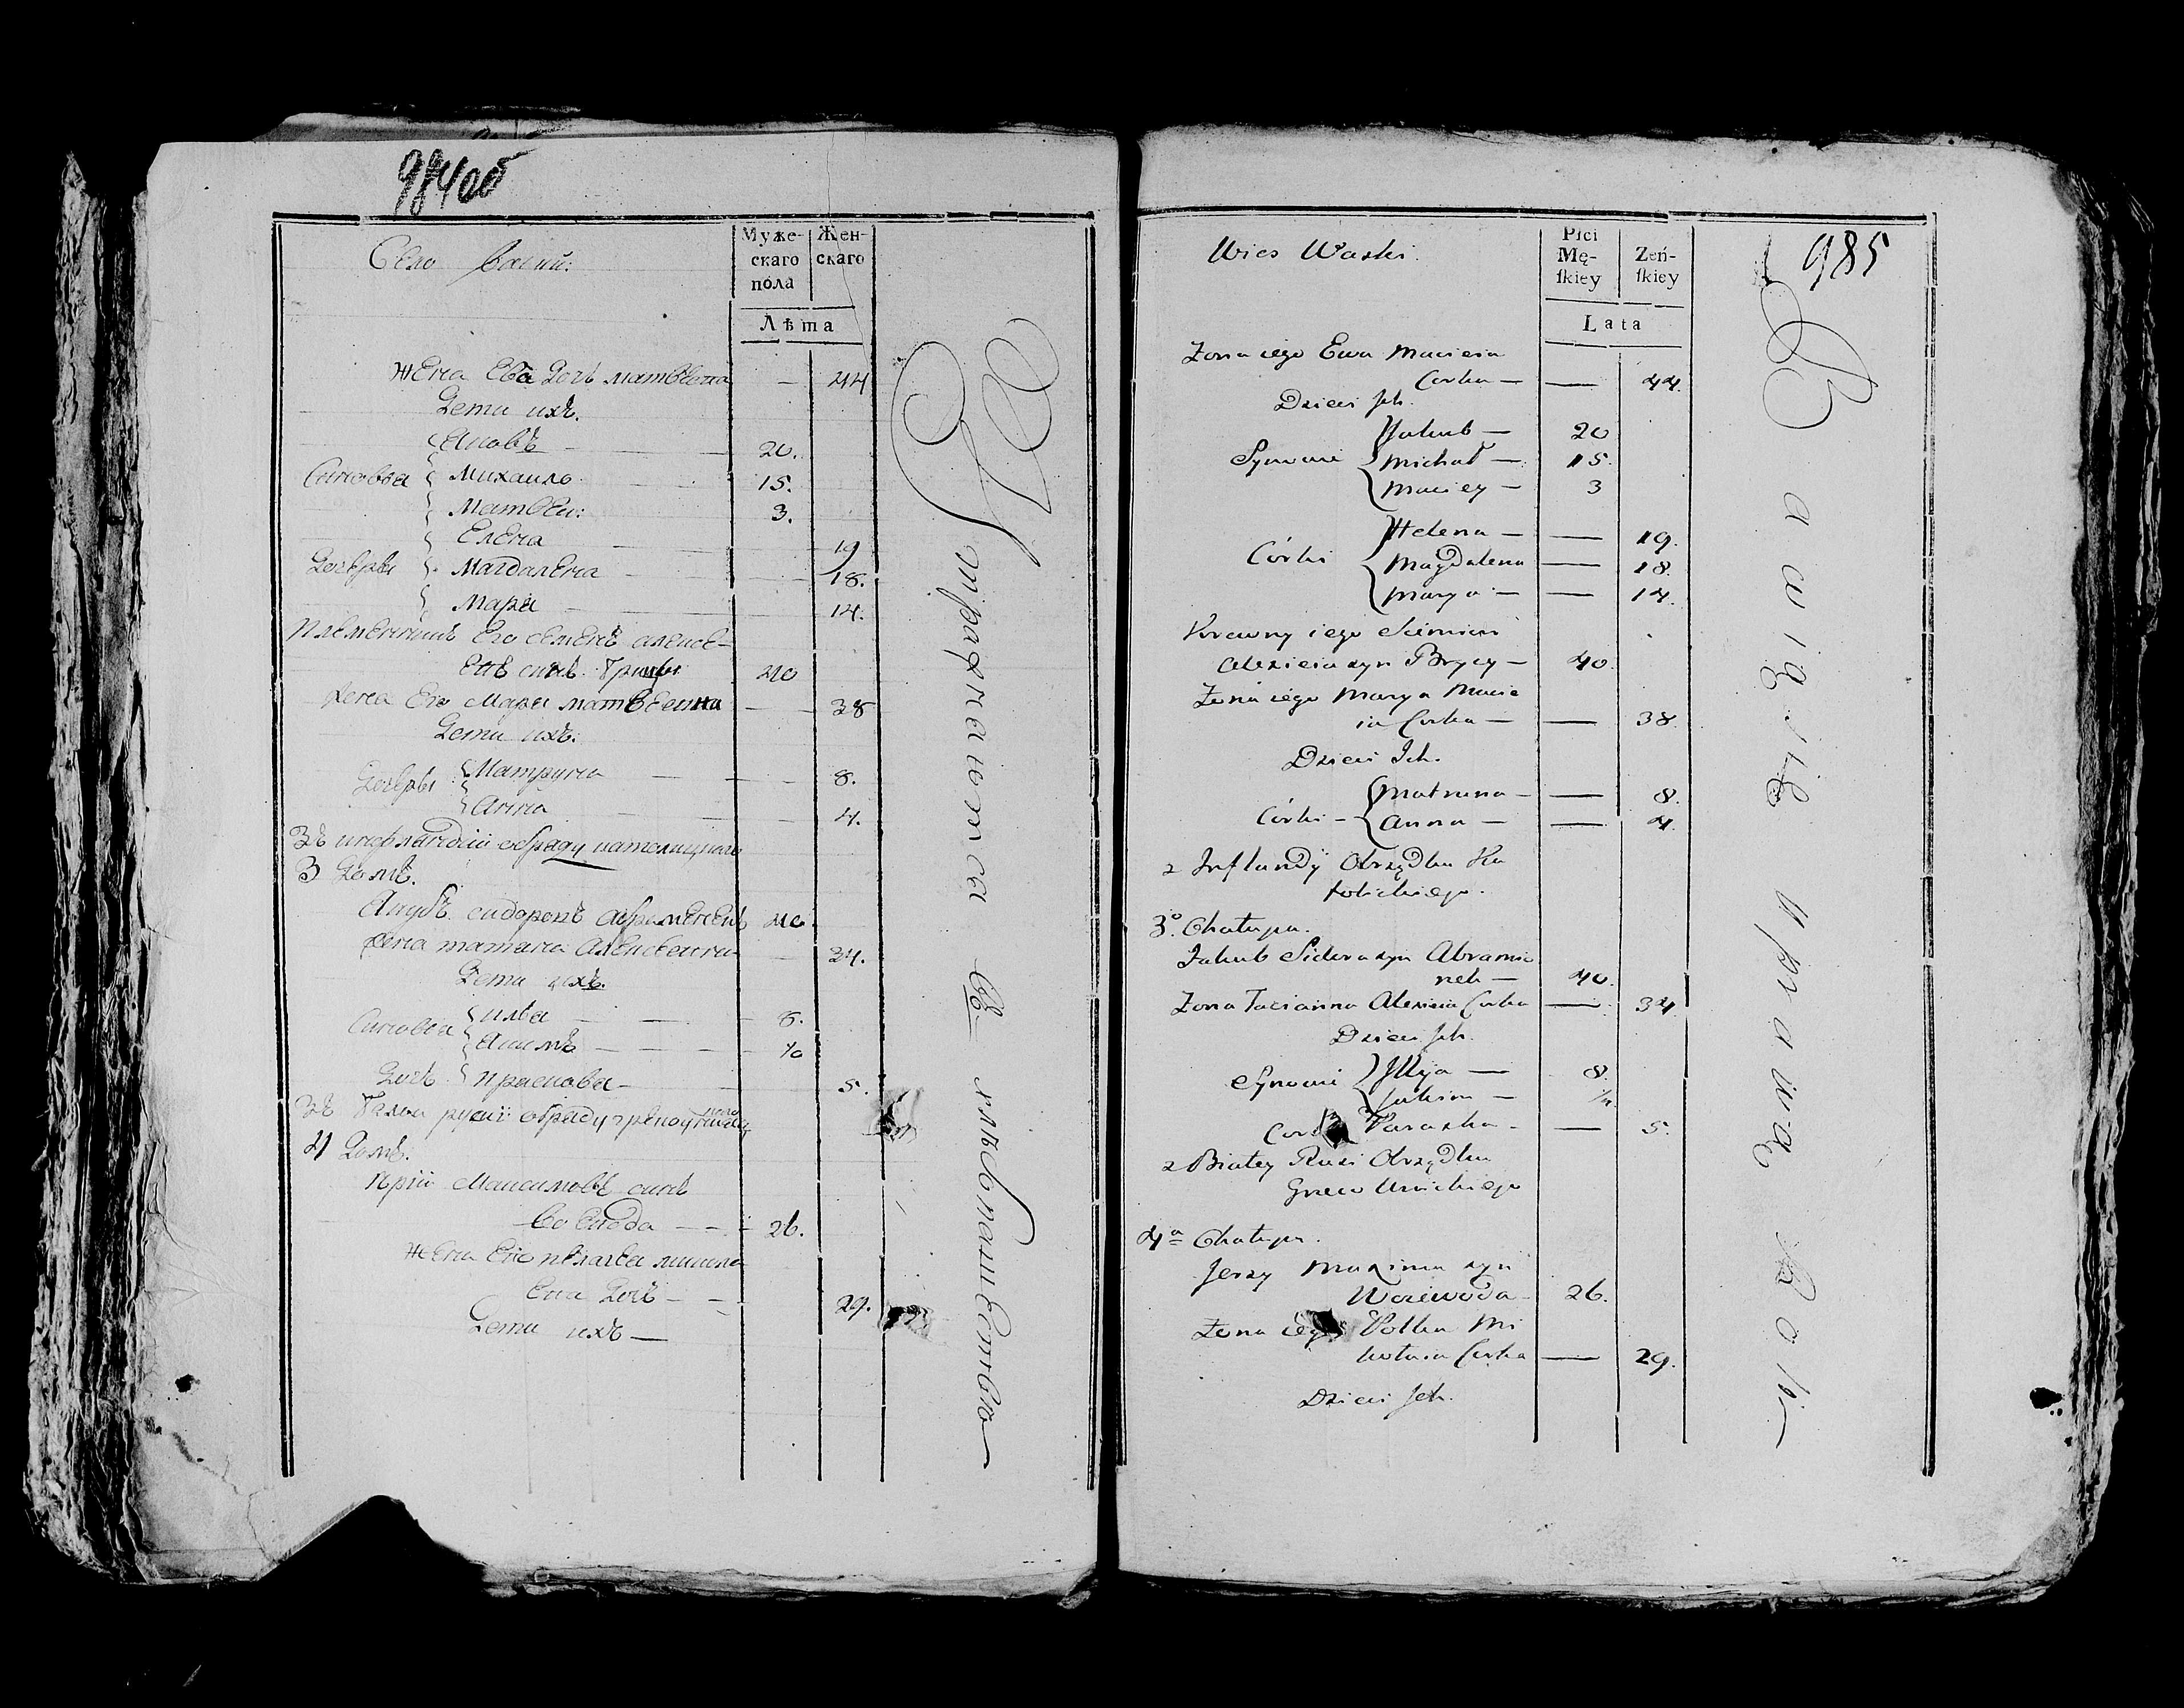 984об
Село Васки:
Муже-
скаго
пола
Жен-
скаго
Лѣта
жена Ева дочь матвѣева — 44
Дети ихъ.
Яковъ — 20.
Синовья Михаило 15.
Матвеи: 3.
Елена — 19
Дочеры Магдалена — 18.
Мария — 14.
Племенникъ Его семенъ алексе-
евъ синъ 40
жена Его Мария матвеевна — 38
Дети ихъ:
Дочеры Матруна — 8.
Анна — 4.
Зъ инфлантии обряду католицкого
3 Домъ.
Якубъ сидоровъ Абраменокъ 40
жена татиана Алексеевна — 34.
Дети ихъ.
Синовья илья — 8.
Якимъ — ½
Дочь прасковья — 5.
Зъ белои русии обряду грекоунитского
4 Домъ.
Юрiи Максимовъ синъ
Воевода — 26.
жена Его пелагея микола
Ева Дочь — 29.
Дети ихъ —
Упражняются въ хлѣбопашествѣ
985
Wies Waski.
Płci
Mę-
skiey
Zeń-
skiey
Lata
Zona iego Ewa Macieia
Corka — — 44.
Dzieci Jch.
Jakub — 20
Synowie Michał — 15.
Maciey — 3
Helena — — 19.
Córki Magdalena — 18.
Marya — — 14.
Krewny iego Siemion
Alexieia syn Brycy — 40.
Zona iego Marya Macie
ia Corka — — 38.
Dzieci Ich.
Matruna — — 8.
Córki — Anna — — 4.
z Inflandÿ Obrządku Ka
tolickiego.
3º Chałupa.
Jakub Sidora syn Abramio
nek — 40.
Zona Tacianna Alexieia Corka — 34
Dzieci Jch.
Synowie Jllija — 8.
Jakim — ½
Corka Paraska — — 5.
z Białey Rusi Obrządku
Greco Unickiego
4ª Chałupa.
Jerzy Maxima syn
Woiewoda — 26.
Zona iego Połka Mi
kołaia Corka — 29.
Dzieci Jch.
Bawią się Uprawą Roli —